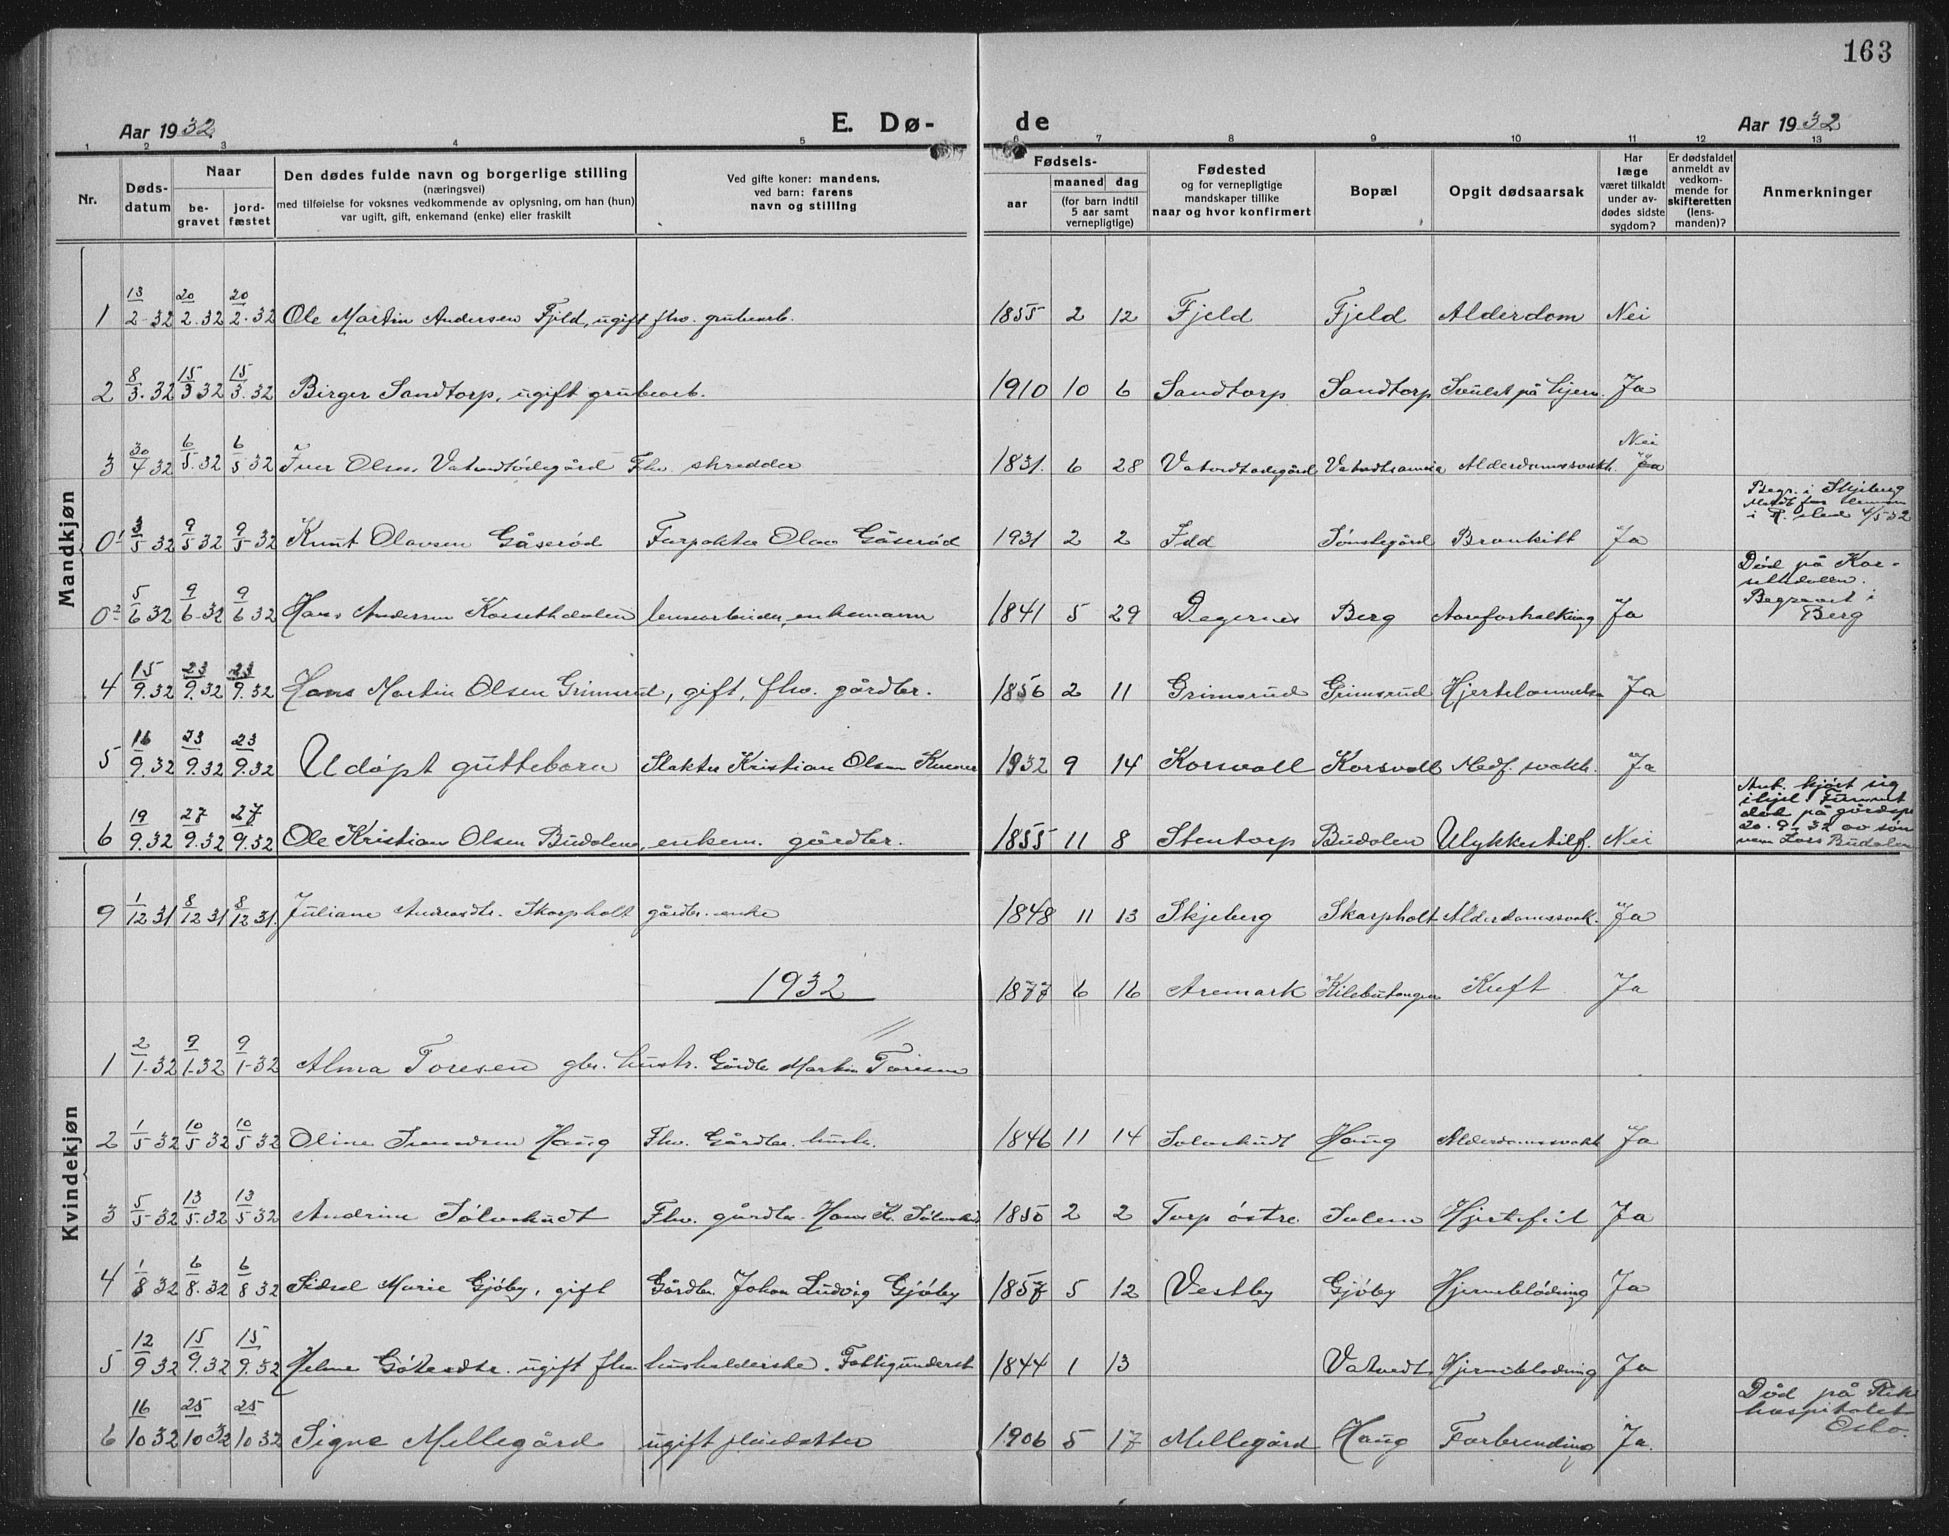 163
Aar 1932 E. Dø- de Aar 1932
1 2 3 4 5 6 7 8 9 10 11 12 13
Nr.
Døds-
datum
Naar
be-
gravet
jord-
fæstet
Den dødes fulde navn og borgerlige stilling
(næringsvei)
med tilføielse for voksnes vedkommende av oplysning, om han (hun)
var ugift, gift, enkemand (enke) eller fraskilt
Ved gifte koner: mandens,
ved barn: farens
navn og stilling
Fødsels-
aar
maaned dag
(for barn indtil
5 aar samt
vernepligtige)
Fødested
og for vernepligtige
mandskaper tillike
naar og hvor konfirmert
Bopæl
Opgit dødsaarsak
Har
læge
været tilkaldt
under av-
dødes sidste
sygdom?
Er dødsfaldet
anmeldt av
vedkom-
mende for
skifteretten
(lens-
manden)?
Anmerkninger
Mandkjøn
1 13/2-32 20/2.32 20/2.32 Ole Martin Andersen Fjeld, ugift fhv. grubearb. 1855 2 12 Fjeld Fjeld Alderdom Nei
2 8/3.32 15/3 32 15/3.32 Birger Sandtorp, ugift grubearb. 1910 10 6 Sandtorp Sandtorp Svulst på hjern. Ja
3 30/4 32 6/5.32 6/5 32 Iver Olsen Vatvedtødegård Fhv. skredder 1831. 6 28 Vatvedtødegård Alderdomssvakh. Nei Ja
0¹ 3/5 32 9/5 32 9/5 32 Knut Olavsen Gåserød Forpakter Olav Gåserød 1931 2 2 Idd Bronkitt Ja
Begr. i Skjeberg
4/5 32
0² 5/6 32 9/6-32 9/6 32 Hans Andersen Kossethdalen enkemann 1841 5 29 Degernes Berg Aareforkalkning Ja
Død på
Begravet i
Berg
4 15/9.32 23/9.32 23/9.32 Hans Martin Olsen Grimsrud, gift, fhv. gårdbr. 1856 2 11 Grimsrud Grimsrud Hjertelammelse Ja
5 16/9.32 23/9.32 23/9.32 Udøpt guttebarn Slakter Kristian Olsen 1932 9 14 Korsvoll Korsvoll Medf. svakh. Ja
6 19/9.32 27/9.32 27/9.32 Ole Kristian Olsen Budalen, enkem. gårdbr. 1855 11 8 Stentorp Budalen Ulykkestilf. Nei
Ant. kjørt sig
ihjel. Funnet
død på
20.9-32 av søn-
nen Lars Budalen
Kvindekjøn
9 1/12 31 8/12 31 8/12 31. Juliane Andreasdtr. Skarpholt gårdbr. enke 1848 11 13 Skjeberg Skarpholt Alderdomssvak. Ja
1932
1877 6 16 Aremark Kilebutangen Kreft Ja
1 2/1-32 9/1.32 9/1-32 Alma Toresen gbr. hustr. Gårdbr Martin Toresen
2 1/5 32 10/5 32 10/5 32 Oline Haug Fhv. Gårdbr. hustr. 1846 11 14 Solvskudt Haug Alderdomssvakh Ja
3 5/5-32 13/5.32 13/5 32 Andrine Sølvskudt Fhv. gårdbr. Hans K. Sølvskudt 1850 2 2 Torp østre Hjertefeil Ja
4 1/8 32 6/8.32 6/8 32 Sidsel Marie Gjøby, gift Gårdbr. Johan Ludvig Gjøby 1857 5 12 Vestby Gjøby Hjerneblødning Ja
5 12/9 32 15/9.32 15/9.32 Helene ugift fhv. husholderske. Fattigunderst 1844 1 13 Vatvedt Hjerneblødning Ja
6 16/10 32 25/10 32 25/10 32 Signe Millegård ugift husdatter 1906 5 17 Millegård Haug Forbrending Ja.
Død på Riks
hospitalet
Oslo.